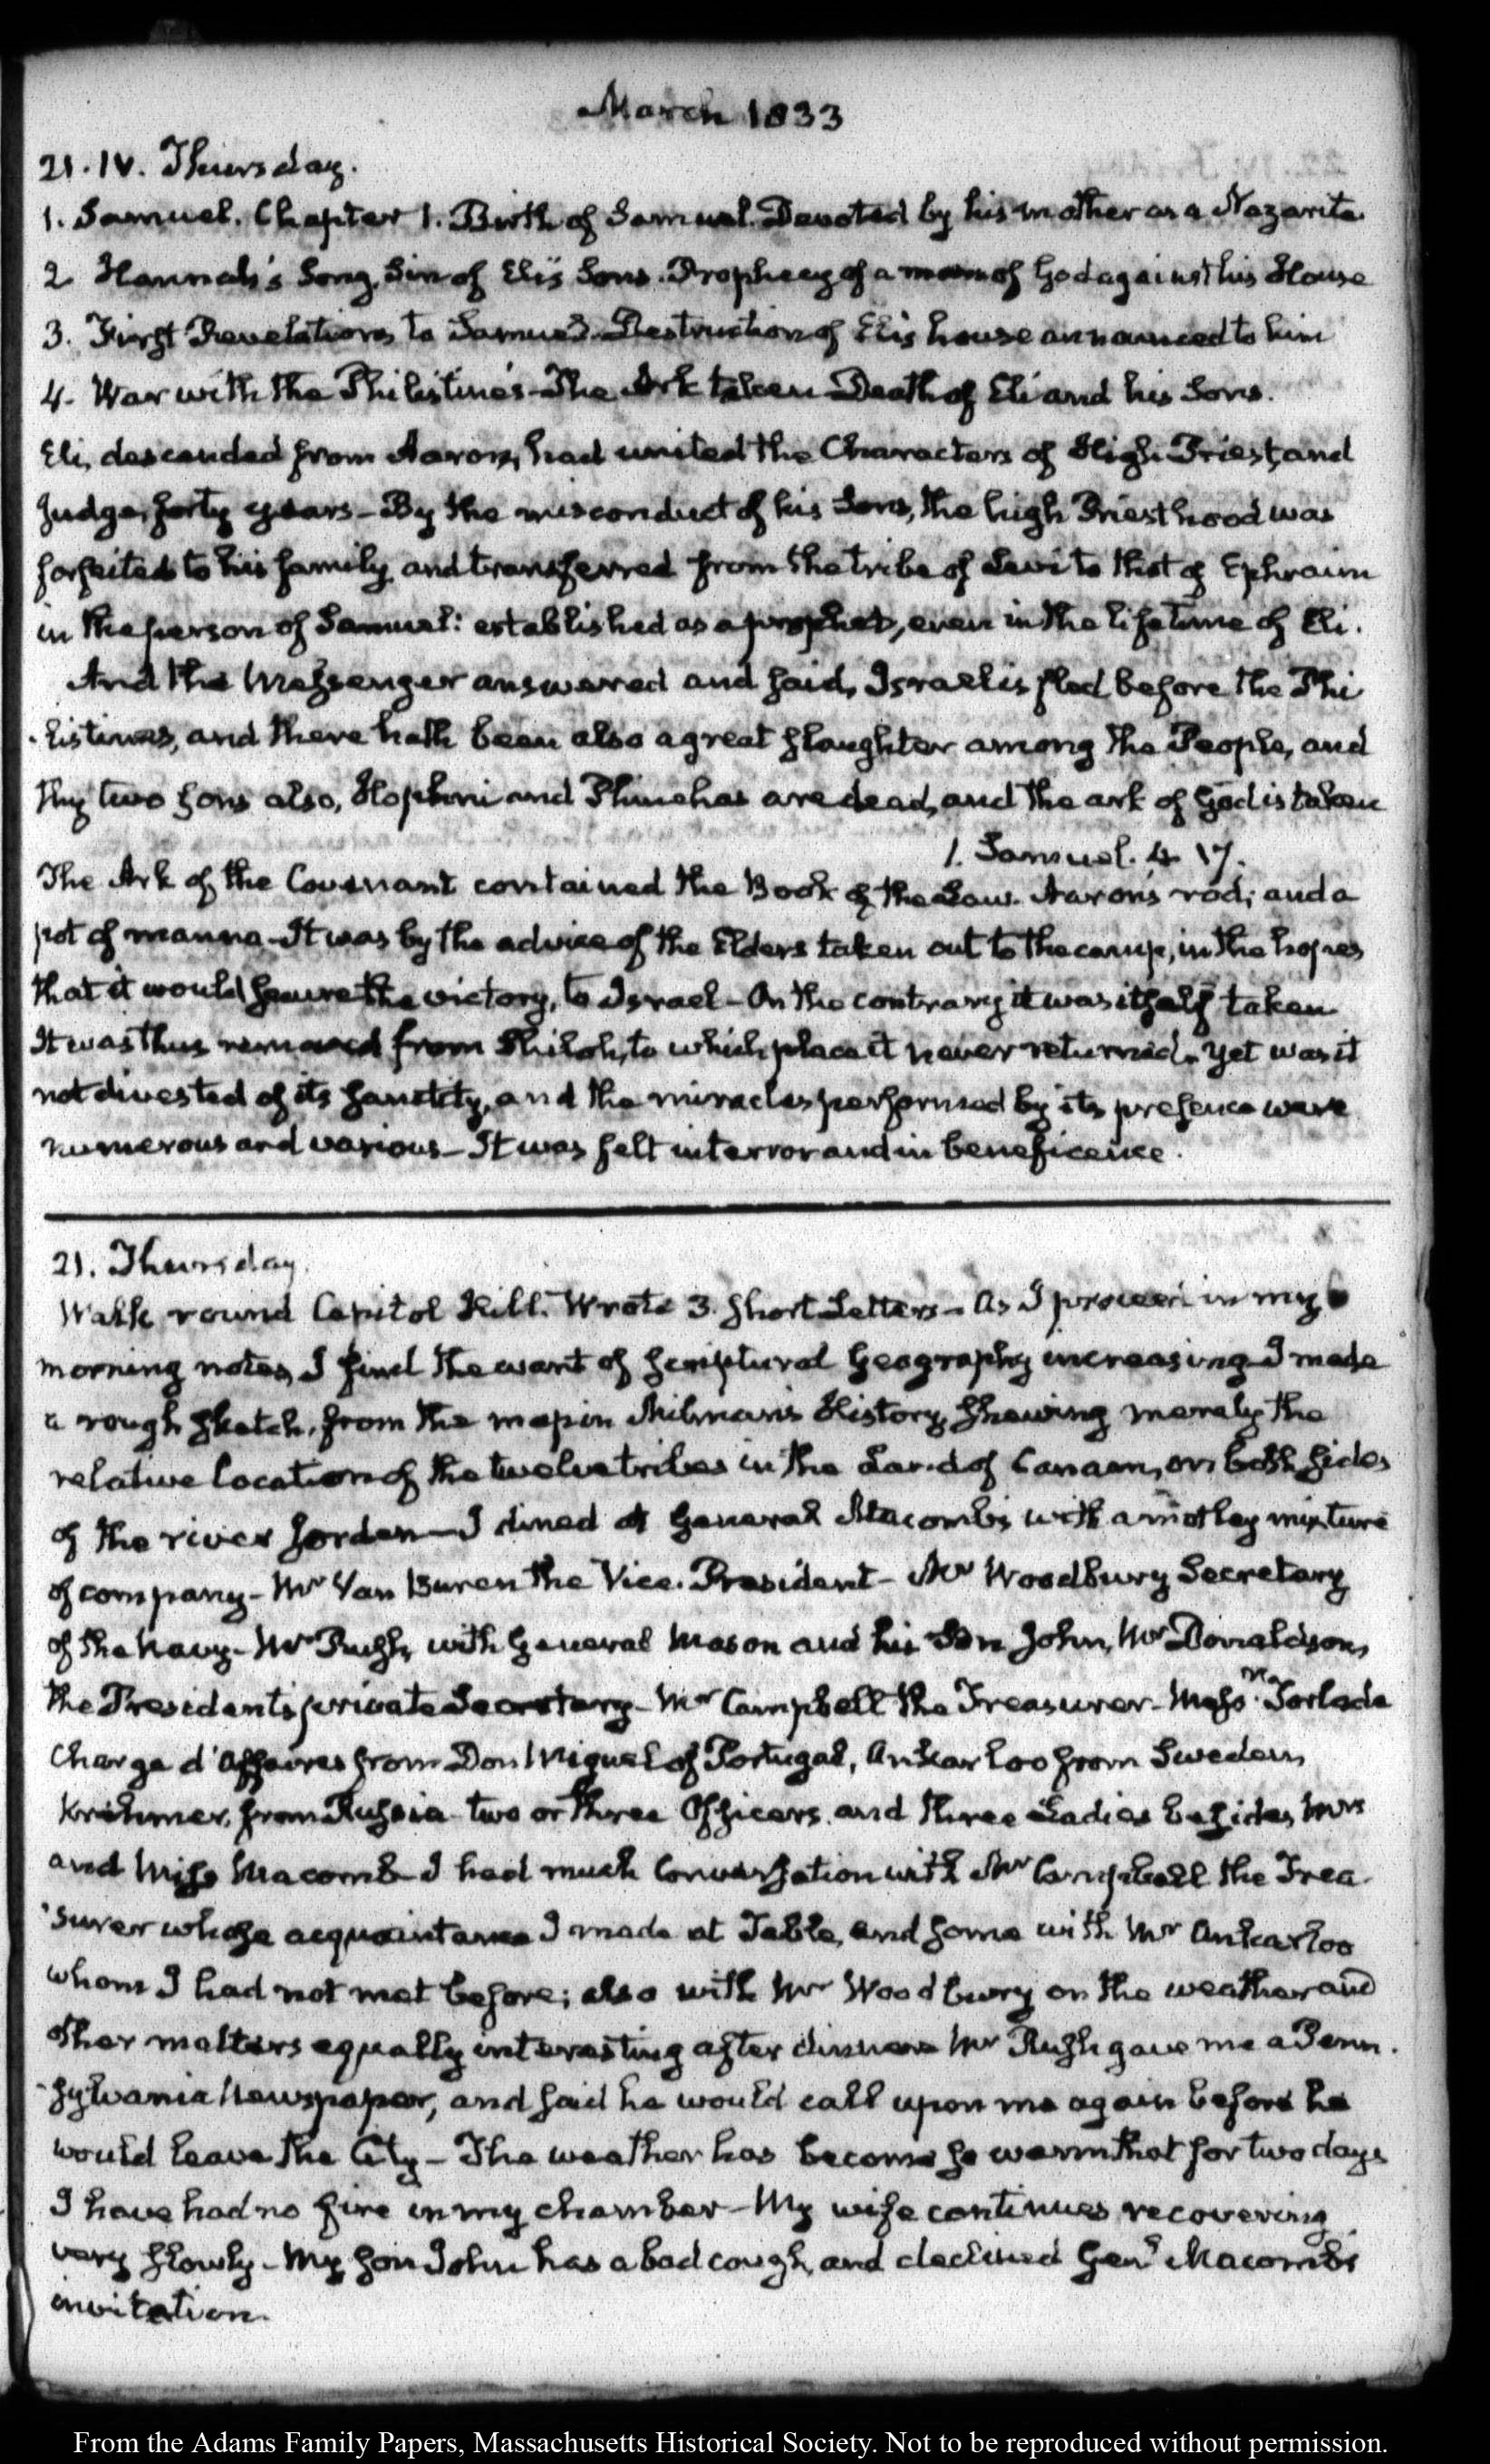 March 1833
21. IV. Thursday.
1. Samuel. Chapter 1. Birth of Samuel. Devoted by his mother as a Nazarite.
2 Hannah's Song, Sin of Eli's Sons. Prophecy of a man of God against his House
3. First Revelations to Samuel. Destruction of Eli's house announced to him
4. War with the Philistines - The Ark taken - Death of Eli and his Sons.
Eli, descended from Aaron, had united the Characters of High Priest, and
Judge, forty years - By the misconduct of his Sons, the high Priesthood was
forfeited to his family, and transferred from the tribe of Levi to that of Ephraim
in the person of Samuel: established as a prophet, even in the lifetime of Eli.
And the Messenger answered and said, Israel is fled before the Phi
-listines, and there hath been also a great slaughter among the People, and
thy two sons also, Hophni and Phinehas are dead, and the ark of God is taken
1. Samuel. 4. 17.
The Ark of the Covenant contained the Book of the Law. Aaron's rod; and a
pot of manna - It was by the advice of the Elders taken out to the camp, in the hopes
that it would secure the victory, to Israel - On the contrary it was itself taken
It was thus removed from Shiloh, to which place it never returned. Yet was it
not divested of its sanctity, and the miracles performed by its presence were
numerous and various - It was felt in terror and in beneficence.
21. Thursday.
Walk round Capitol Hill. Wrote 3. short Letters - As I proceed in my
morning notes, I find the want of scriptural Geography increasing - I made
a rough sketch, from the map in Milman's History, shewing merely the
relative location of the twelve tribes in the Land of Canaan, on both sides
of the river Jordan - I dined at General Macomb's with a motley mixture
of company - Mr Van Buren the Vice. President - Mr Woodbury Secretary
of the Navy - Mr Rush, with General Mason and his Son John, Mr Donaldson,
the President's private Secretary - Mr Campbell the Treasurer - Messrs Torlade
Charge d'Affaires from Don Miguel of Portugal, Ankarloo from Sweden,
Krehmer, from Russia - two or three Officers, and three Ladies besides Mrs
and Miss Macomb - I had much Conversation with Mr Campbell the Trea-
surer whose acquaintance I made at Table, and some with Mr Ankarloo
whom I had not met before; also with Mr Woodbury on the weather and
other matters equally interesting after dinner Mr Rush gave me a Penn-
-sylvania Newspaper, and said he would call upon me again before he
would leave the City - The weather has become so warm that for two days
I have had no fire in my chamber - My wife continues recovering
very slowly - My son John has a bad cough, and declined Genl Macomb's
invitation.
From the Adams Family Papers, Massachusetts Historical Society. Not to be reproduced without permission.